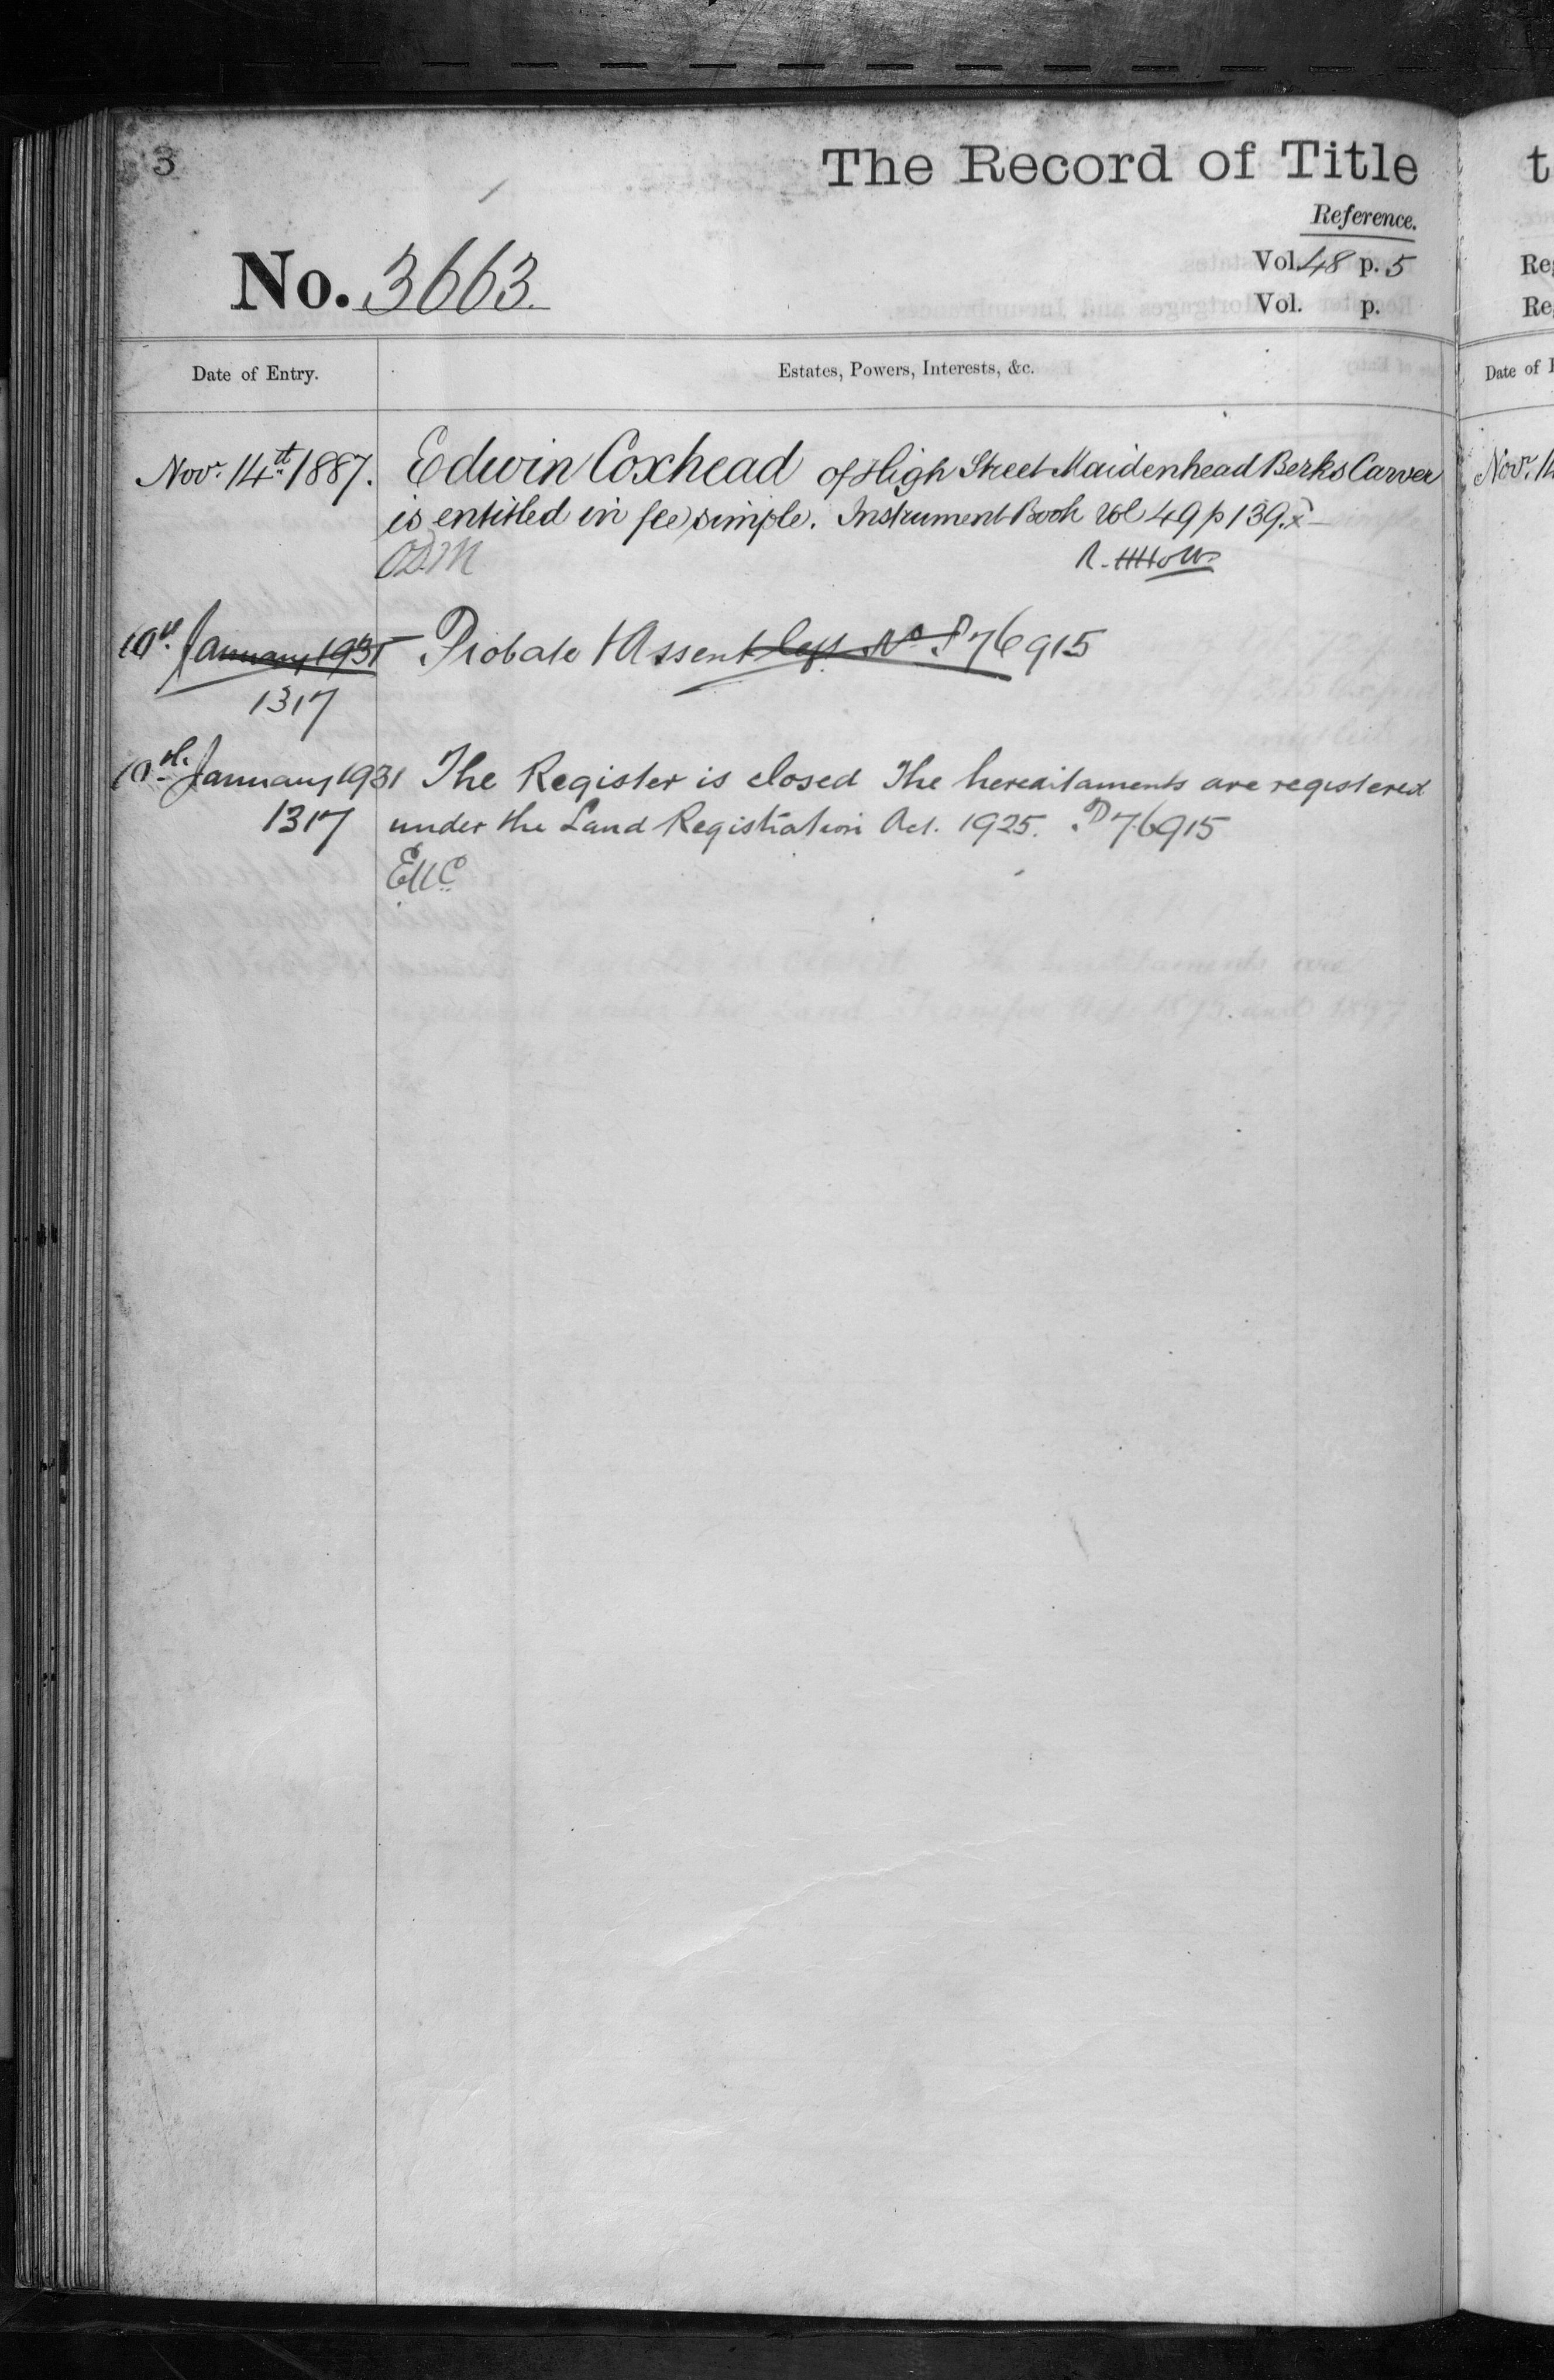 3
The Record of Title
Reference.
Vol. 48 p. 5
No. 3663.
Vol. p.
Date of Entry.
Estates, Powers, Interests, &c.
Novr. 14th 1887.
Edwin Coxhead of High Street Maidenhead Berks Carver
is entitled in fee simple. Instrument Book Vol 49 p 139.
10th January 1931
Probate & Assent left No P76915
1317
10th January 1931
The Register is closed The hereditaments are registered
1317
under the Land Registration Act. 1925. P76915
t
Reg
Reg
Date of E
Novr. 14